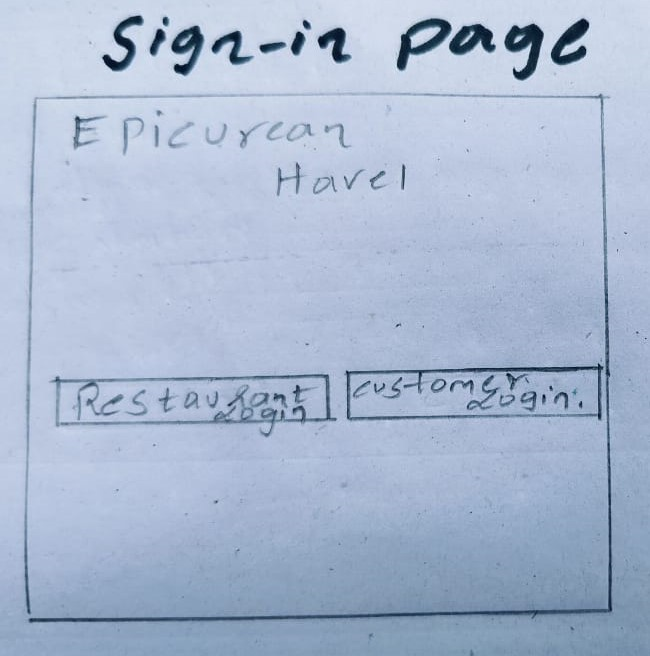 Sign-in page
Epicurean
Havel
Restaurant
Login
customer.
Login.